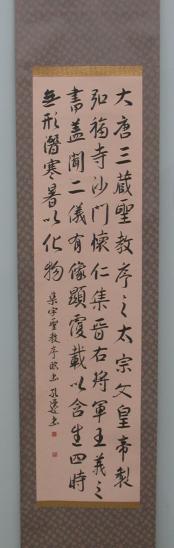 大唐三蔵聖教序之太宗文皇帝製
弘福寺沙門懐仁集晋右将軍王羲之
書盖聞二儀有像顕覆載以含生四時
無形潛寒暑以化物
集字聖教序